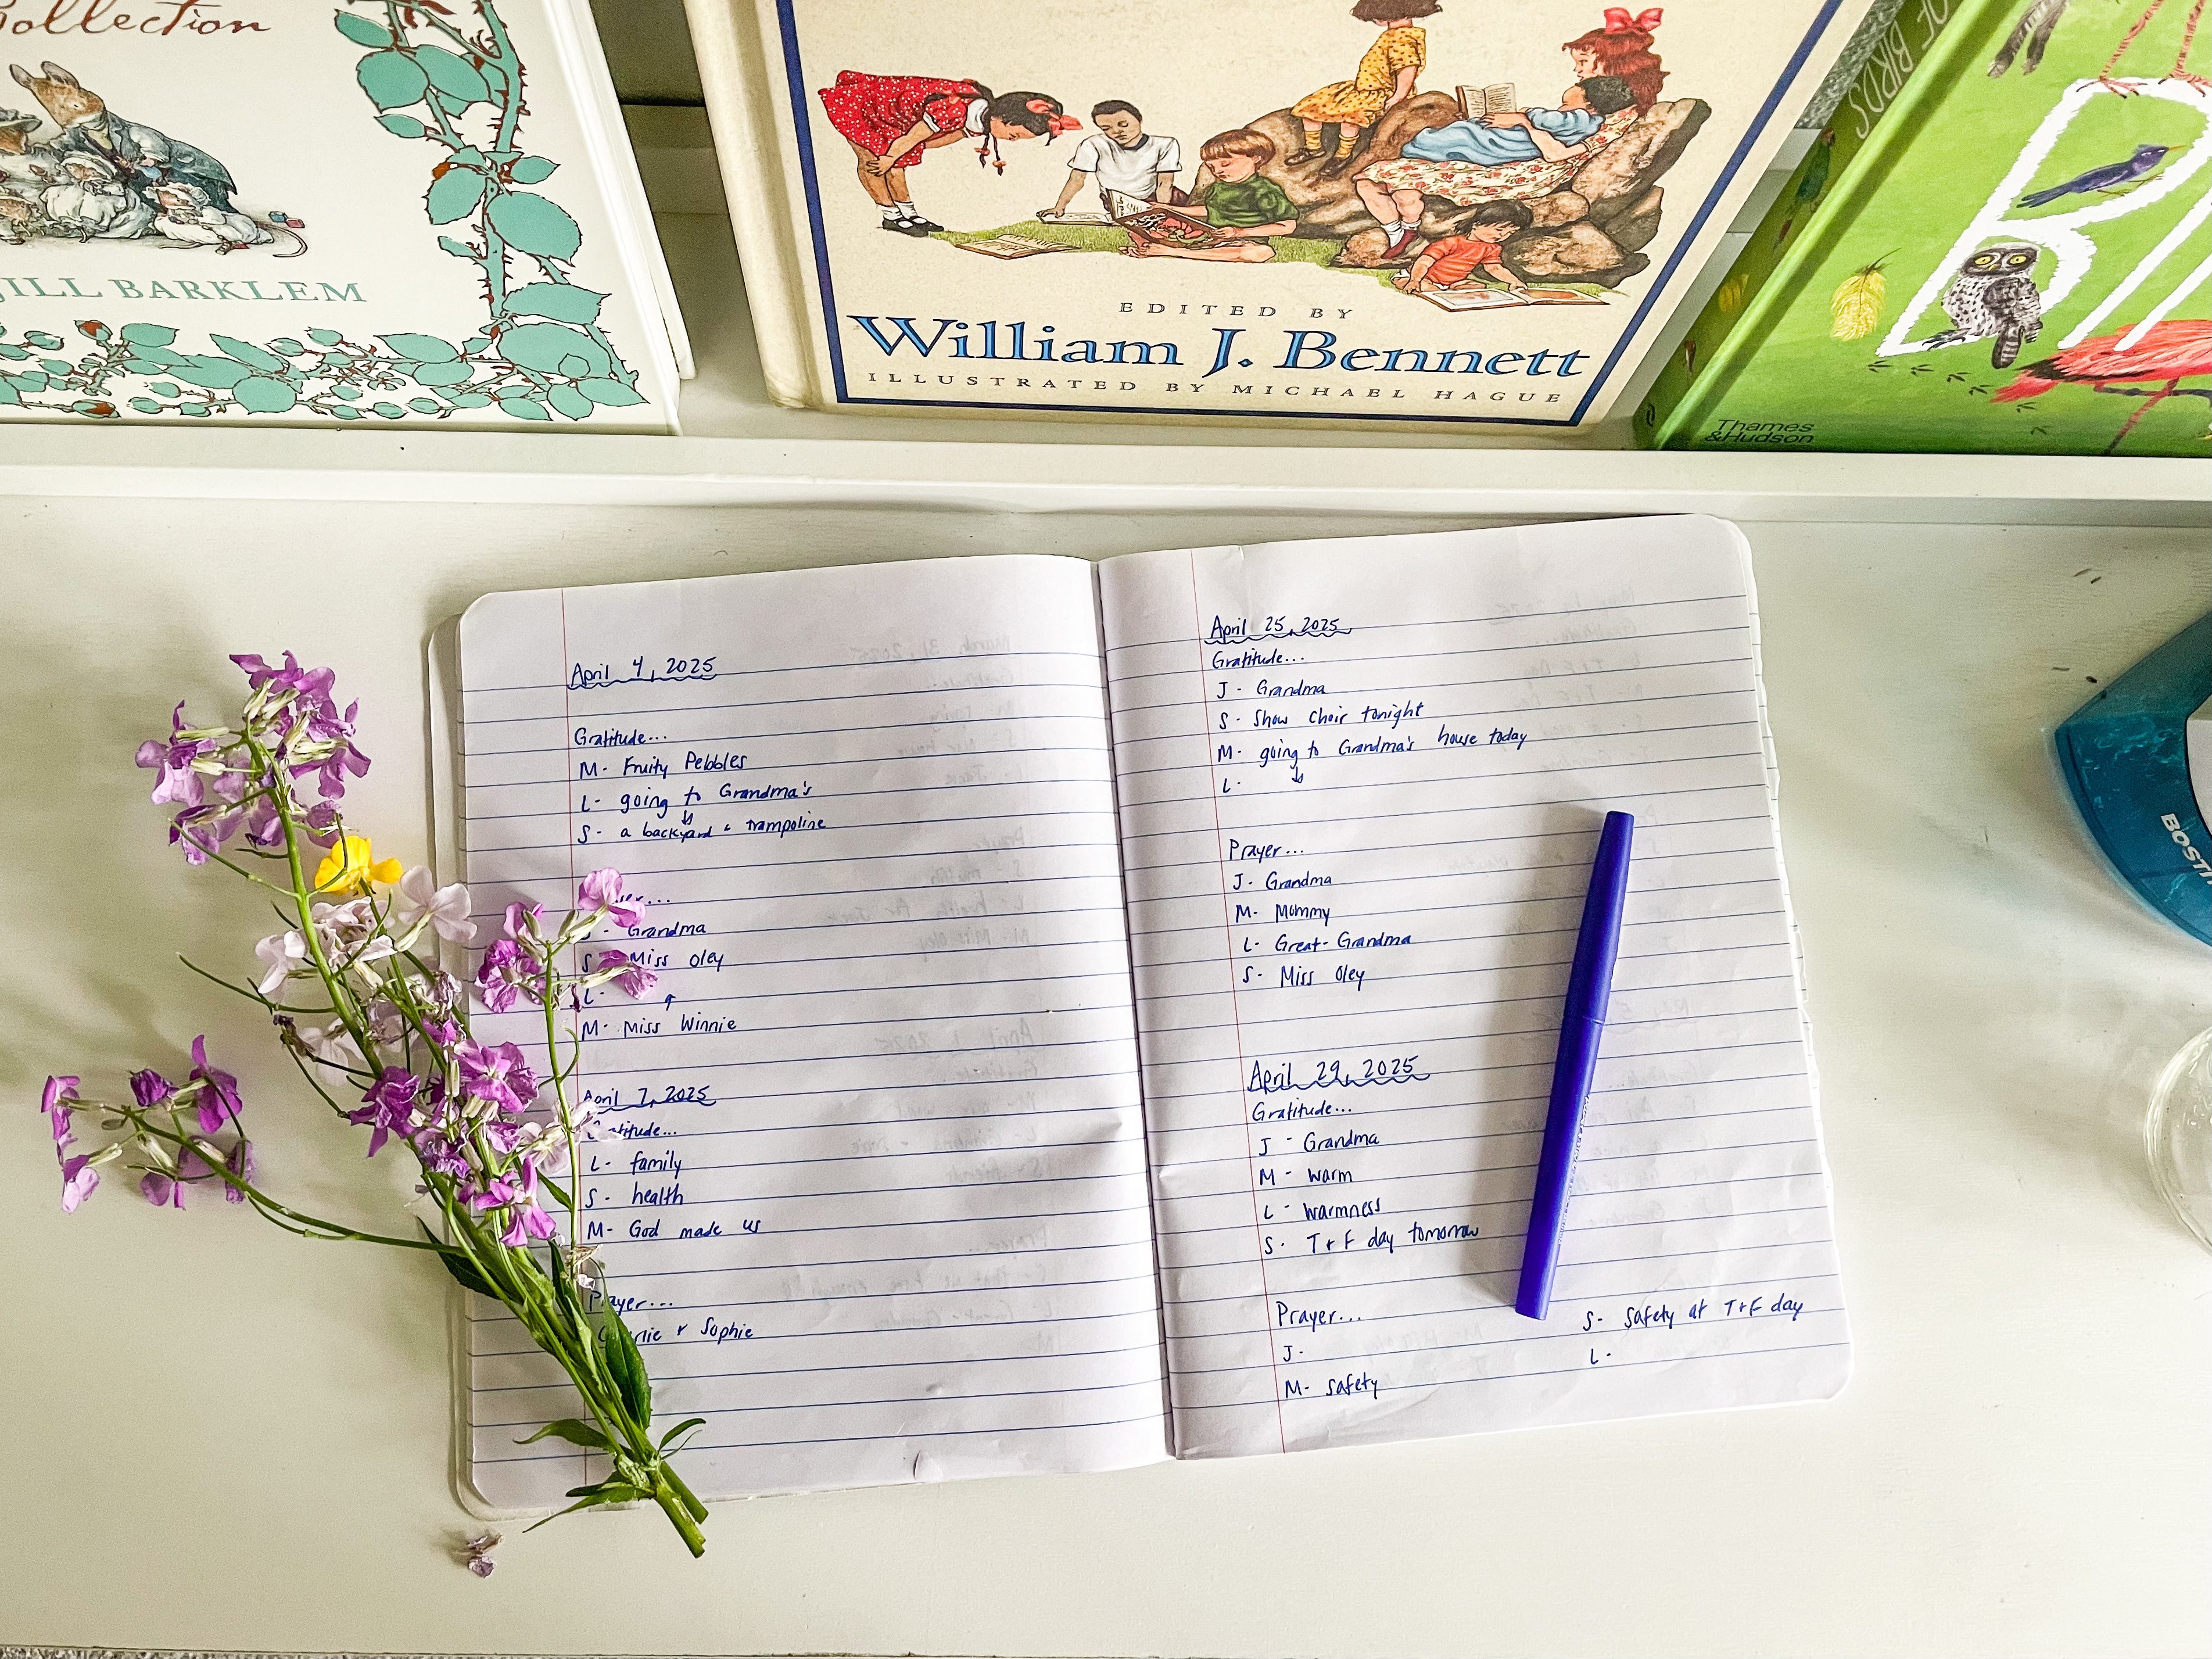 Collection
JILL BARKLEM
EDITED BY
William J. Bennett
ILLUSTRATED BY MICHAEL HAGUE
OF BIRDS
Thames
&Hudson
BOSTI
April 4, 2025
Gratitude...
M- Fruity Pebbles
L- going to Grandma's
S- a backyard & trampoline
- Grandma
S Miss Oley
L-
M- Miss Winnie
April 7, 2025
Gratitude...
L- family
S- health
M- God made us
Prayer...
+ Sophie
April 25, 2025
Gratitude...
J- Grandma
S- Show choir tonight
M- going to Grandma's house today
L-
Prayer...
J- Grandma
M- Mommy
L- Great-Grandma
S- Miss Oley
April 29, 2025
Gratitude...
J- Grandma
M- warm
L- warmness
S- T+F day tomorrow
Prayer...
J-
M- safety
S- safety at T+F day
L-